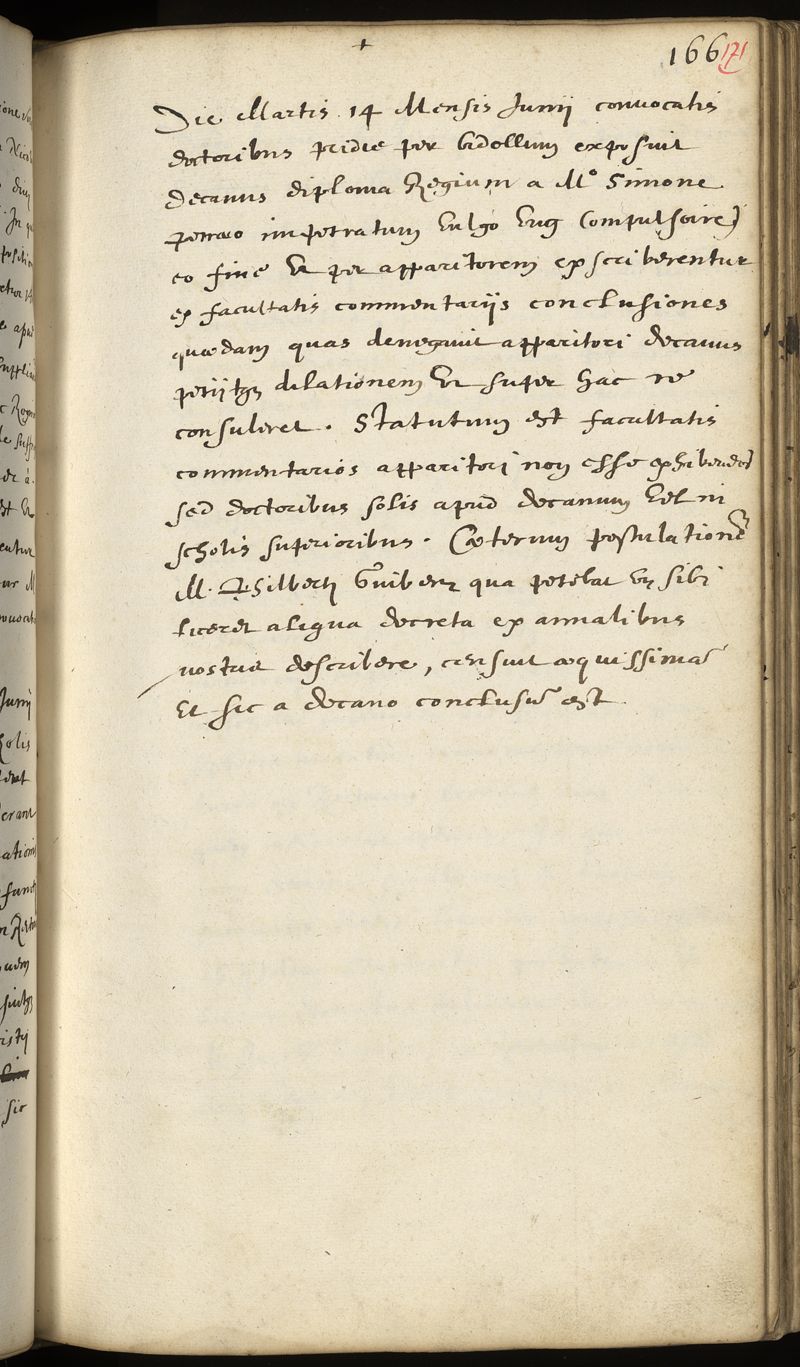 166 171
Die Martis 14 Mensis Junij convocatis
doctoribus pridie per bidellum exposuit
Decanus diploma Regium a M° Simone
Petraeo impetratum vulgo ung Compulsoire
eo fine ut per apparitorem exscriberentur
ex facultatis commentarijs conclusiones
quaedam quas denegavit apparitori decanus
petijtq; dilationem ut super hac re
consuleret. Statutum est facultatis
commentarios apparitori non esse exhibendos
sed doctoribus solis apud decanum vel in
scholis superioribus. Caeterum postulationē
M. Gilberti qua petebat ut sibi
liceret aliqua decreta ex annalibus
nostris describere, censuit aequissimā
Et sic a decano conclusū est.